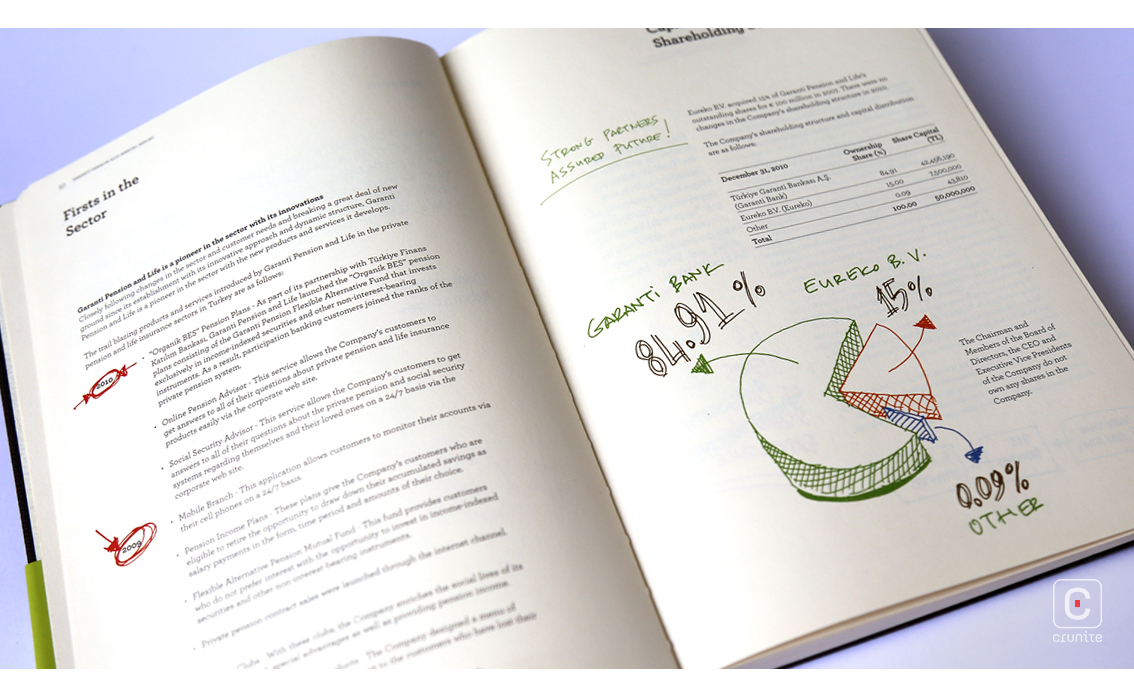 Firsts in the
Sector
Garanti Pension and Life is a pioneer in the sector with its innovations
Closely following changes in the sector and customer needs and breaking a great deal of new
ground since its establishment with its innovative approach and dynamic structure, Garanti
Pension and Life is a pioneer in the sector with the new products and services it develops.
The trail blazing products and services introduced by Garanti Pension and Life in the private
pension and life insurance sectors in Turkey are as follows:
2010
• "Organik BES" Pension Plans - As part of its partnership with Türkiye Finans
Katılım Bankası, Garanti Pension and Life launched the "Organik BES" pension
plans consisting of the Garanti Pension Flexible Alternative Fund that invests
exclusively in income-indexed securities and other non-interest-bearing
instruments. As a result, participation banking customers joined the ranks of the
private pension system.
• Online Pension Advisor - This service allows the Company's customers to
get answers to all of their questions about private pension and life insurance
products easily via the corporate web site.
• Social Security Advisor - This service allows the Company's customers to get
answers to all of their questions about the private pension and social security
systems regarding themselves and their loved ones on a 24/7 basis via the
corporate web site.
• Mobile Branch - This application allows customers to monitor their accounts via
their cell phones on a 24/7 basis.
2009
• Pension Income Plans - These plans give the Company's customers who are
eligible to retire the opportunity to draw down their accumulated savings as
salary payments in the form, time period and amounts of their choice.
• Flexible Alternative Pension Mutual Fund - This fund provides customers
who do not prefer interest with the opportunity to invest in income-indexed
securities and other non interest bearing instruments.
• Private pension contract sales were launched through the internet channel.
Clubs - With these clubs, the Company enriches the social lives of its
special advantages as well as providing pension income.
The Company designed a menu of
to the customers who have lost their
Shareholding
Eureko B.V. acquired 15% of Garanti Pension and Life's
outstanding shares for € 100 million in 2007. There were no
changes in the Company's shareholding structure in 2010.
The Company's shareholding structure and capital distribution
are as follows:
STRONG PARTNERS
ASSURED FUTURE!
December 31, 2010 Ownership Share (%) Share Capital (TL)
Türkiye Garanti Bankası A.Ş. (Garanti Bank) 84.91 42,456,190
Eureko B.V. (Eureko) 15.00 7,500,000
Other 0.09 43,810
Total 100.00 50,000,000
GARANTİ BANK
84.91%
EUREKO B.V.
15%
0.09%
OTHER
The Chairman and
Members of the Board of
Directors, the CEO and
Executive Vice Presidents
of the Company do not
own any shares in the
Company.
crunite